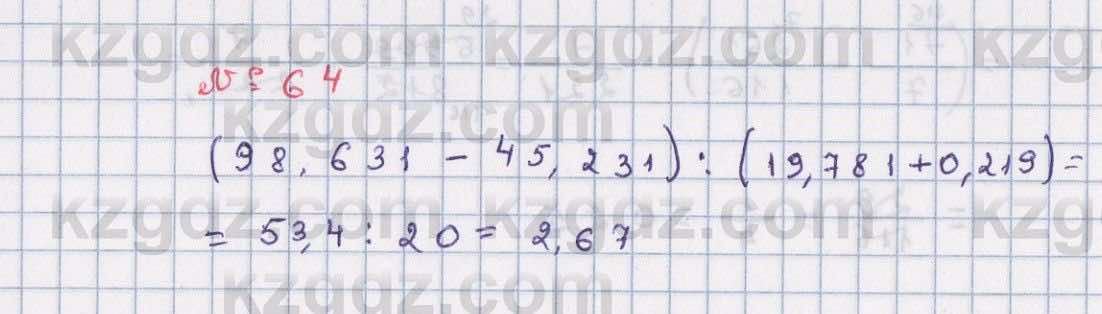 № 64
(98,631 - 45,231) : (19,781 + 0,219) =
= 53,4 : 20 = 2,67
kzgdz.com kzgdz.com kzgdz.com
kzgdz.com
kzgdz.com kzgdz.com kzgdz.com
kzgdz.com